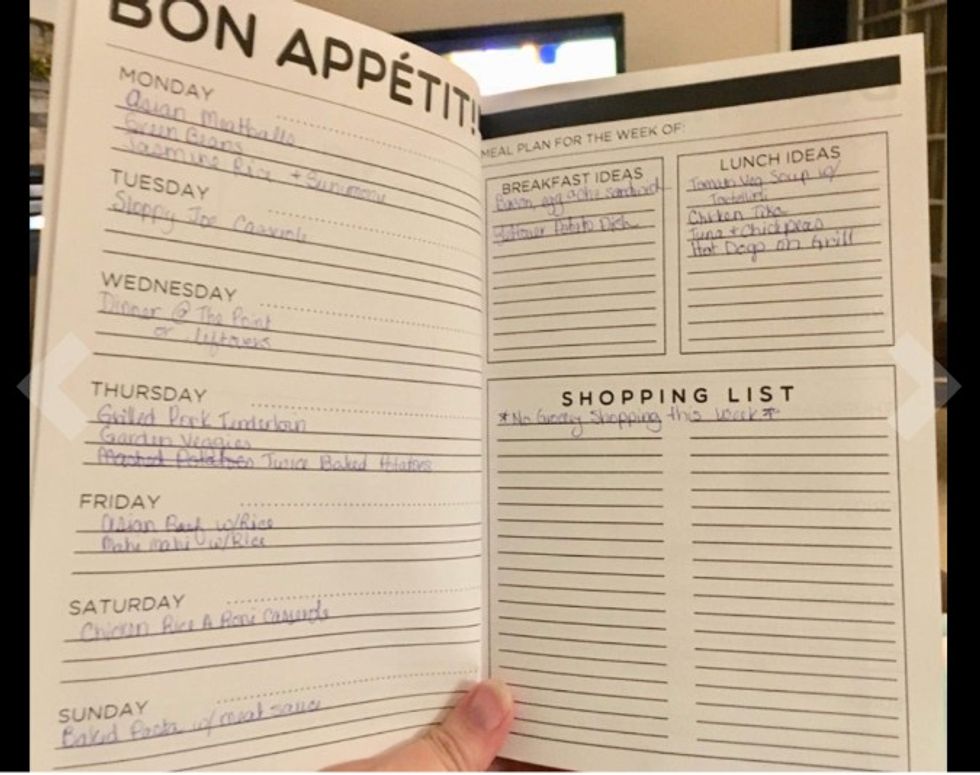 BON APPÉTIT!
MONDAY
Asian Meatballs
Green Beans
Jasmine Rice +
TUESDAY
Sloppy Joe Casserole
WEDNESDAY
Dinner @ The Point
or leftovers
THURSDAY
Grilled Pork Tenderloin
Garden Veggies
Mashed Potatoes Twice Baked Potatoes
FRIDAY
Asian Beef w/Rice
Mahi mahi w/Rice
SATURDAY
Chicken Rice A Roni Casserole
SUNDAY
Baked Pasta w/meat sauce
MEAL PLAN FOR THE WEEK OF:
BREAKFAST IDEAS
Bacon, egg sandwich
Potato Dish
LUNCH IDEAS
Tomato Veg Soup w/
Tortellini
Chicken
Tuna + Chickpeas
Hot Dogs on Grill
SHOPPING LIST
*No Grocery Shopping this week*